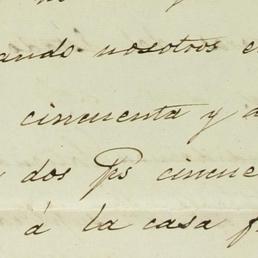 ando nosotros e
cincuenta y d
dos Ps cincue
á la casa f